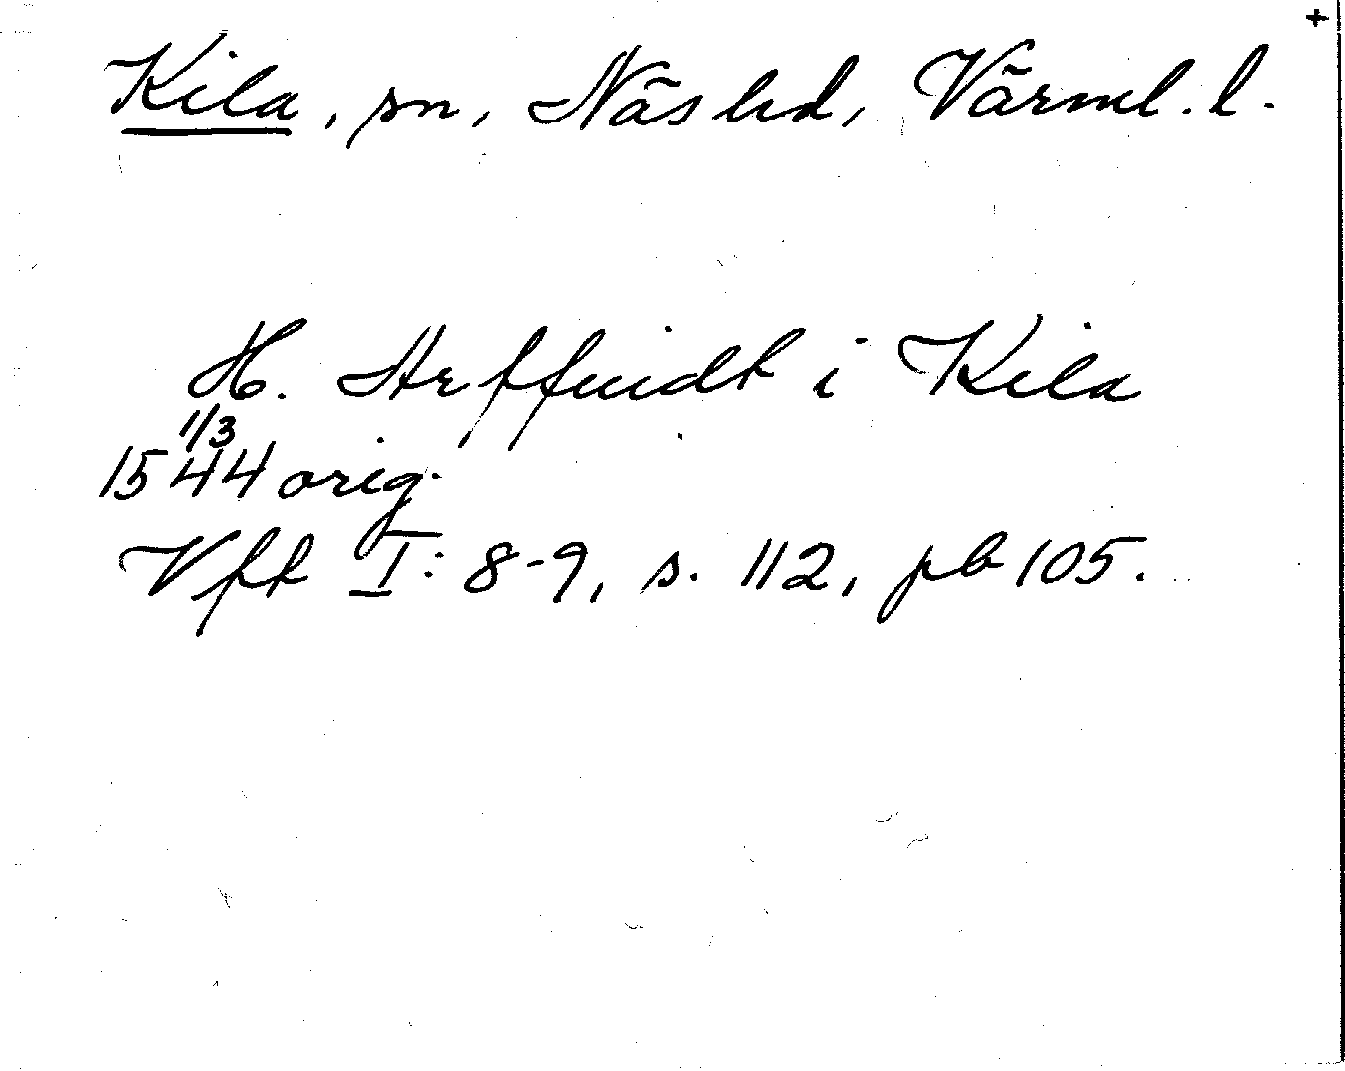 +
Kila, sn, Näs hd, Värml. l.
H. Steffuidt i Kila
1/3
1544 orig.
Vfk I: 8-9, s. 112, pb 105.